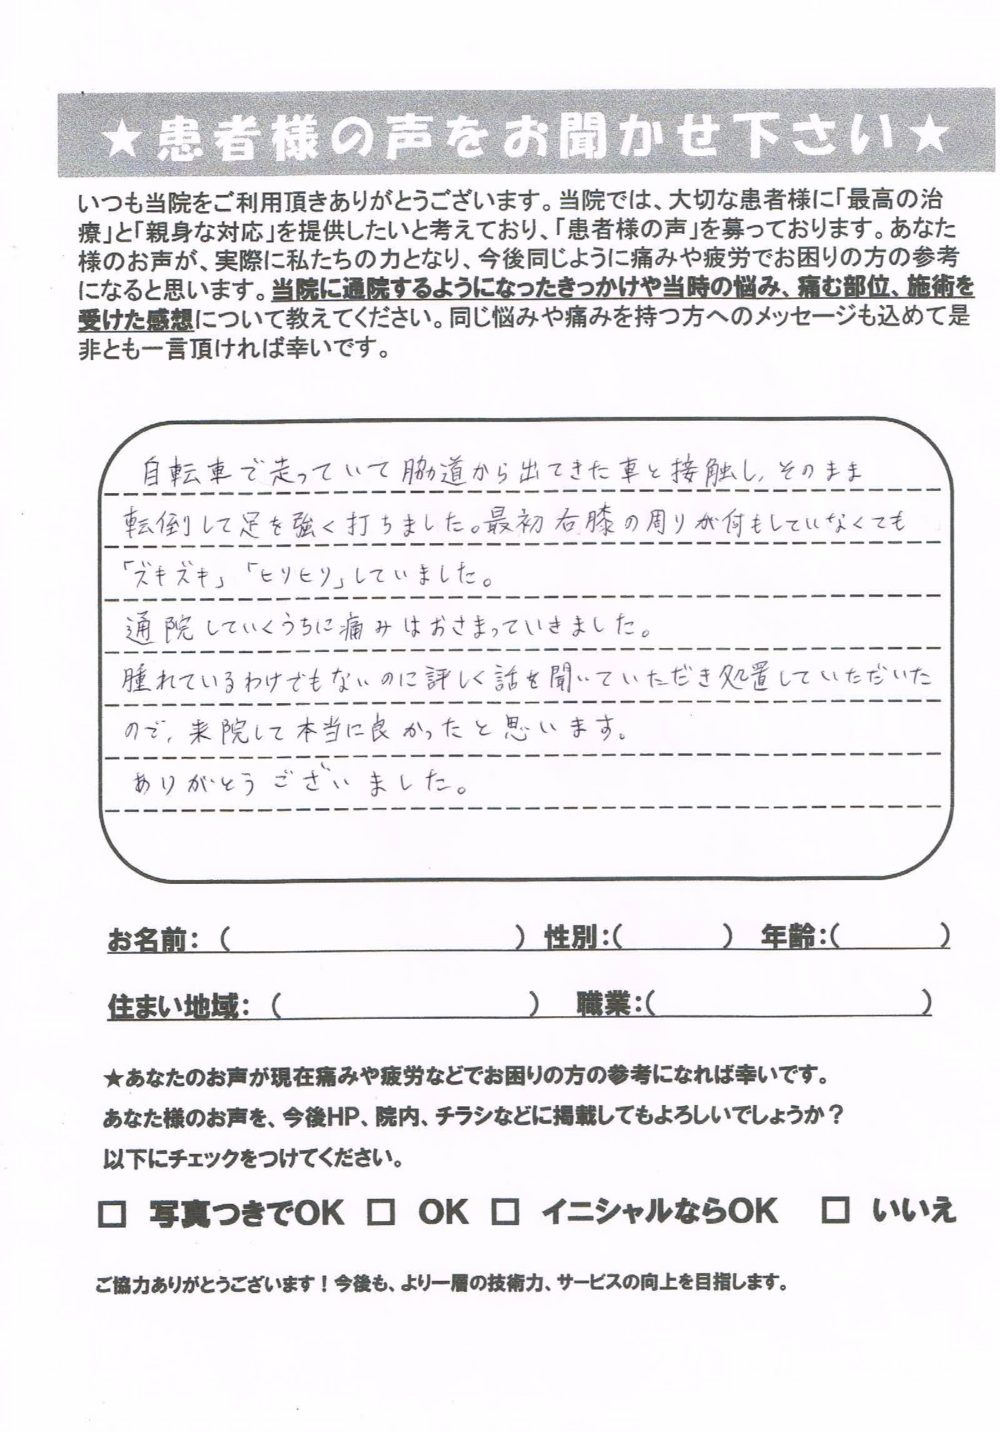 ★患者様の声をお聞かせ下さい★
いつも当院をご利用頂きありがとうございます。当院では、大切な患者様に「最高の治
療」と「親身な対応」を提供したいと考えており、「患者様の声」を募っております。あなた
様のお声が、実際に私たちの力となり、今後同じように痛みや疲労でお困りの方の参考
になると思います。当院に通院するようになったきっかけや当時の悩み、痛む部位、施術を
受けた感想について教えてください。同じ悩みや痛みを持つ方へのメッセージも込めて是
非とも一言頂ければ幸いです。
自転車で走っていて脇道から出てきた車と接触し、そのまま
転倒して足を強く打ちました。最初右膝の周りが何もしていなくても
「ズキズキ」「ヒリヒリ」していました。
通院していくうちに痛みはおさまっていきました。
腫れているわけでもないのに詳しく話を聞いていただき処置していただいた
ので、来院して本当に良かったと思います。
ありがとうございました。
お名前：（　　　）性別：（　　　）年齢：（　　　）
住まい地域：（　　　）職業：（　　　）
★あなたのお声が現在痛みや疲労などでお困りの方の参考になれば幸いです。
あなた様のお声を、今後HP、院内、チラシなどに掲載してもよろしいでしょうか？
以下にチェックをつけてください。
□ 写真つきでOK □ OK □ イニシャルならOK □ いいえ
ご協力ありがとうございます！今後も、より一層の技術力、サービスの向上を目指します。